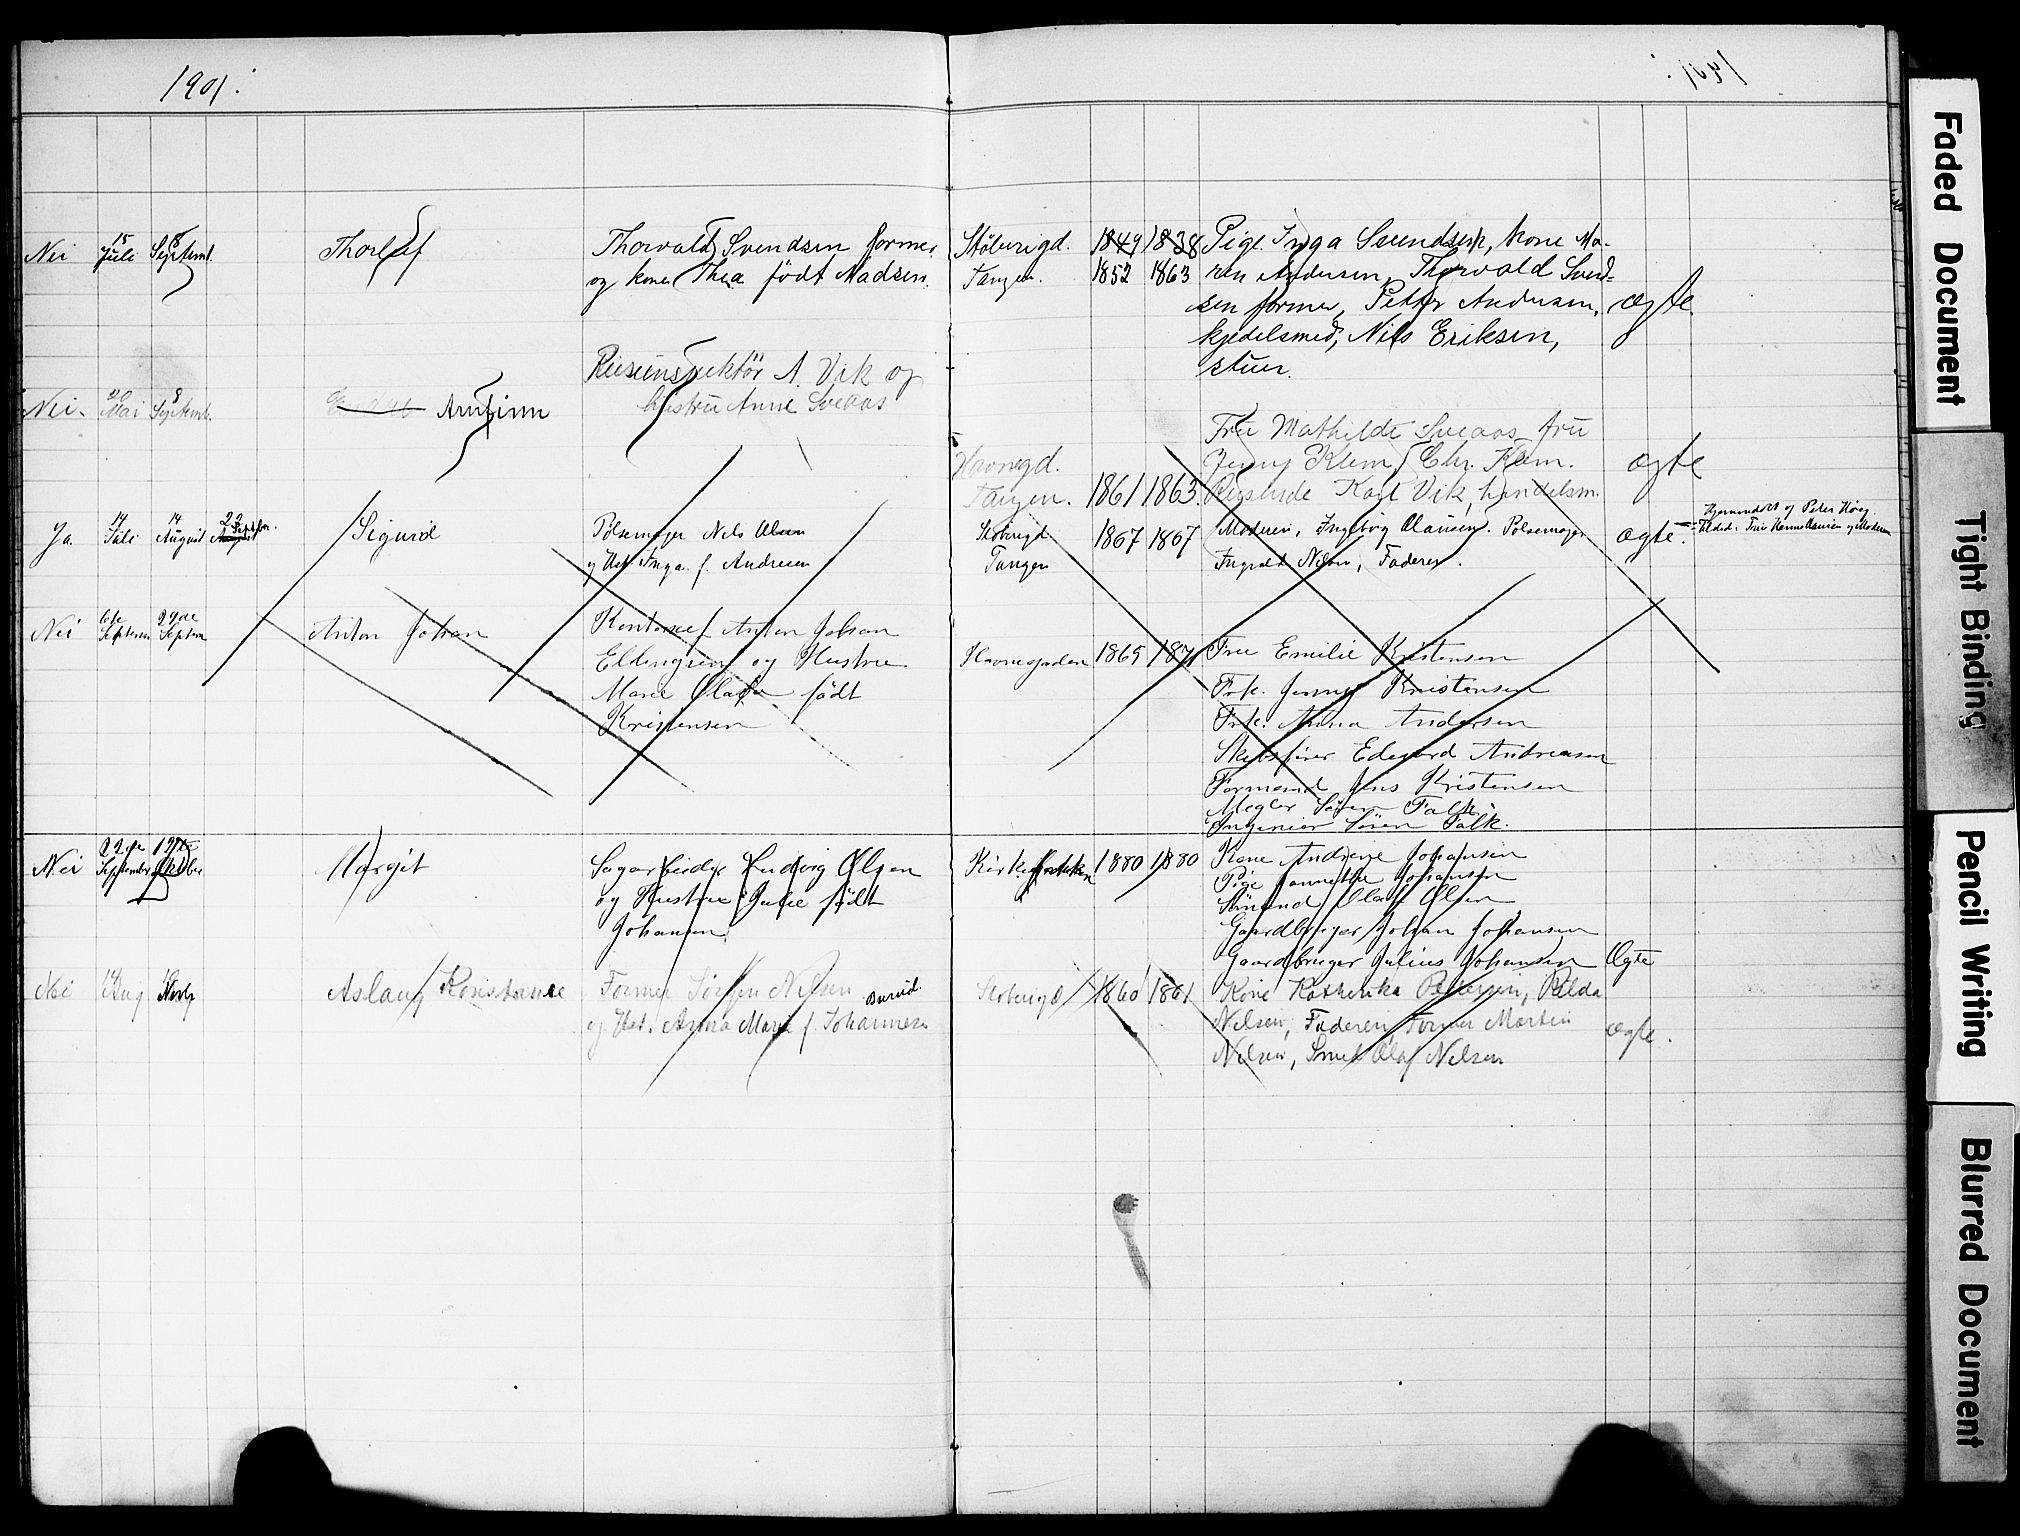 1901.
Nei 15 Juli 8 Septemb. Thorleif Thorvald Svendsen former og kone Thea født Madsen. Støberigd. Tangen. 1849 1838
1852 1863 Pige Inga Svendsen, kone Ma-
ren Andersen, Thorvald Svend-
sen former, Petter Andersen, ægte.
kjedelsmed, Nils Eriksen,
stuer.
Nei. 20 Mai 8 Septemb. Arnfinn A. Vik og
hustru Anne Sveaas
Havnegd. Tangen. 1861 1863 Fru Mathilde Sveaas, fru
Jenny Klem, Chr. Klem. ægte
Karl Vik, handelsm.
Ja. 14 Juli 14 August 22 Septbr. August Sigurd Pølsemager Nils Olsen
og Hst. Inga f. Andresen Støberigd. Tangen 1867 1867 Moderen, Ingeborg Olausen. Pølsemager
Nilsen, Faderen. ægte.
Hjemmedøbt af Peter Høeg.
Nei 6te Septem 29de Septem Anton Johan Anton Johan
og Hustru
Marie født
Kristensen Havnegaden 1865 1871 Fru Emilie Kristensen
Frk. Jenny Kristensen
Frk. Anna Andersen
Skibsfører Edvard Andreasen
Formand Jens Kristensen
Megler Søren Falk
Ingeniør Søren Falk.
Nei 22de September Oktober Margit Sagarbeider Ludvig Olsen
og Hustru Julie født
Johansen 1880 1880 Kone Andrine Johansen
Pige Johansen
Olaf Olsen
Gaardbruger Johan Johansen
Gaardbruger Julius Johansen Ægte
Nei 14 Aug Aslaug Konstanse Former Nilsen
og Hst. Anna Marie f. Johannesen Støberigd 1860 1861 Kone Kathrinka Pedersen,
Nilsen, Faderen, Former Martin
Nilsen, Smed Olaf Nilsen ægte.
Faded Document
Tight Binding
Pencil Writing
Blurred Document